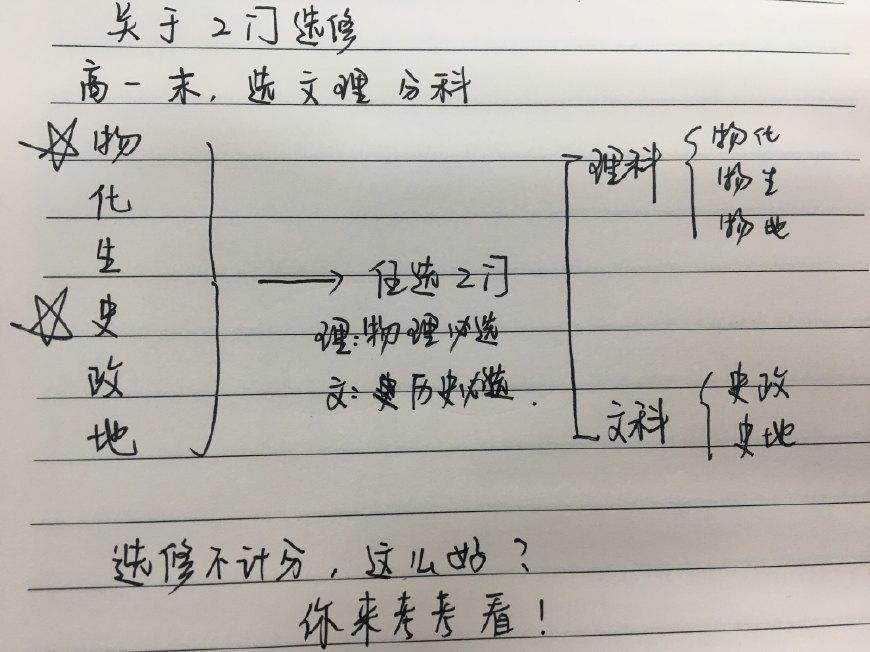 关于2门选修
高一末，选文理分科
物
化
生
史
政
地
任选2门
理：物理必选
文：历史必选.
理科
物化
物生
物地
文科
史政
史地
选修不计分，这么好？
你来考考看！